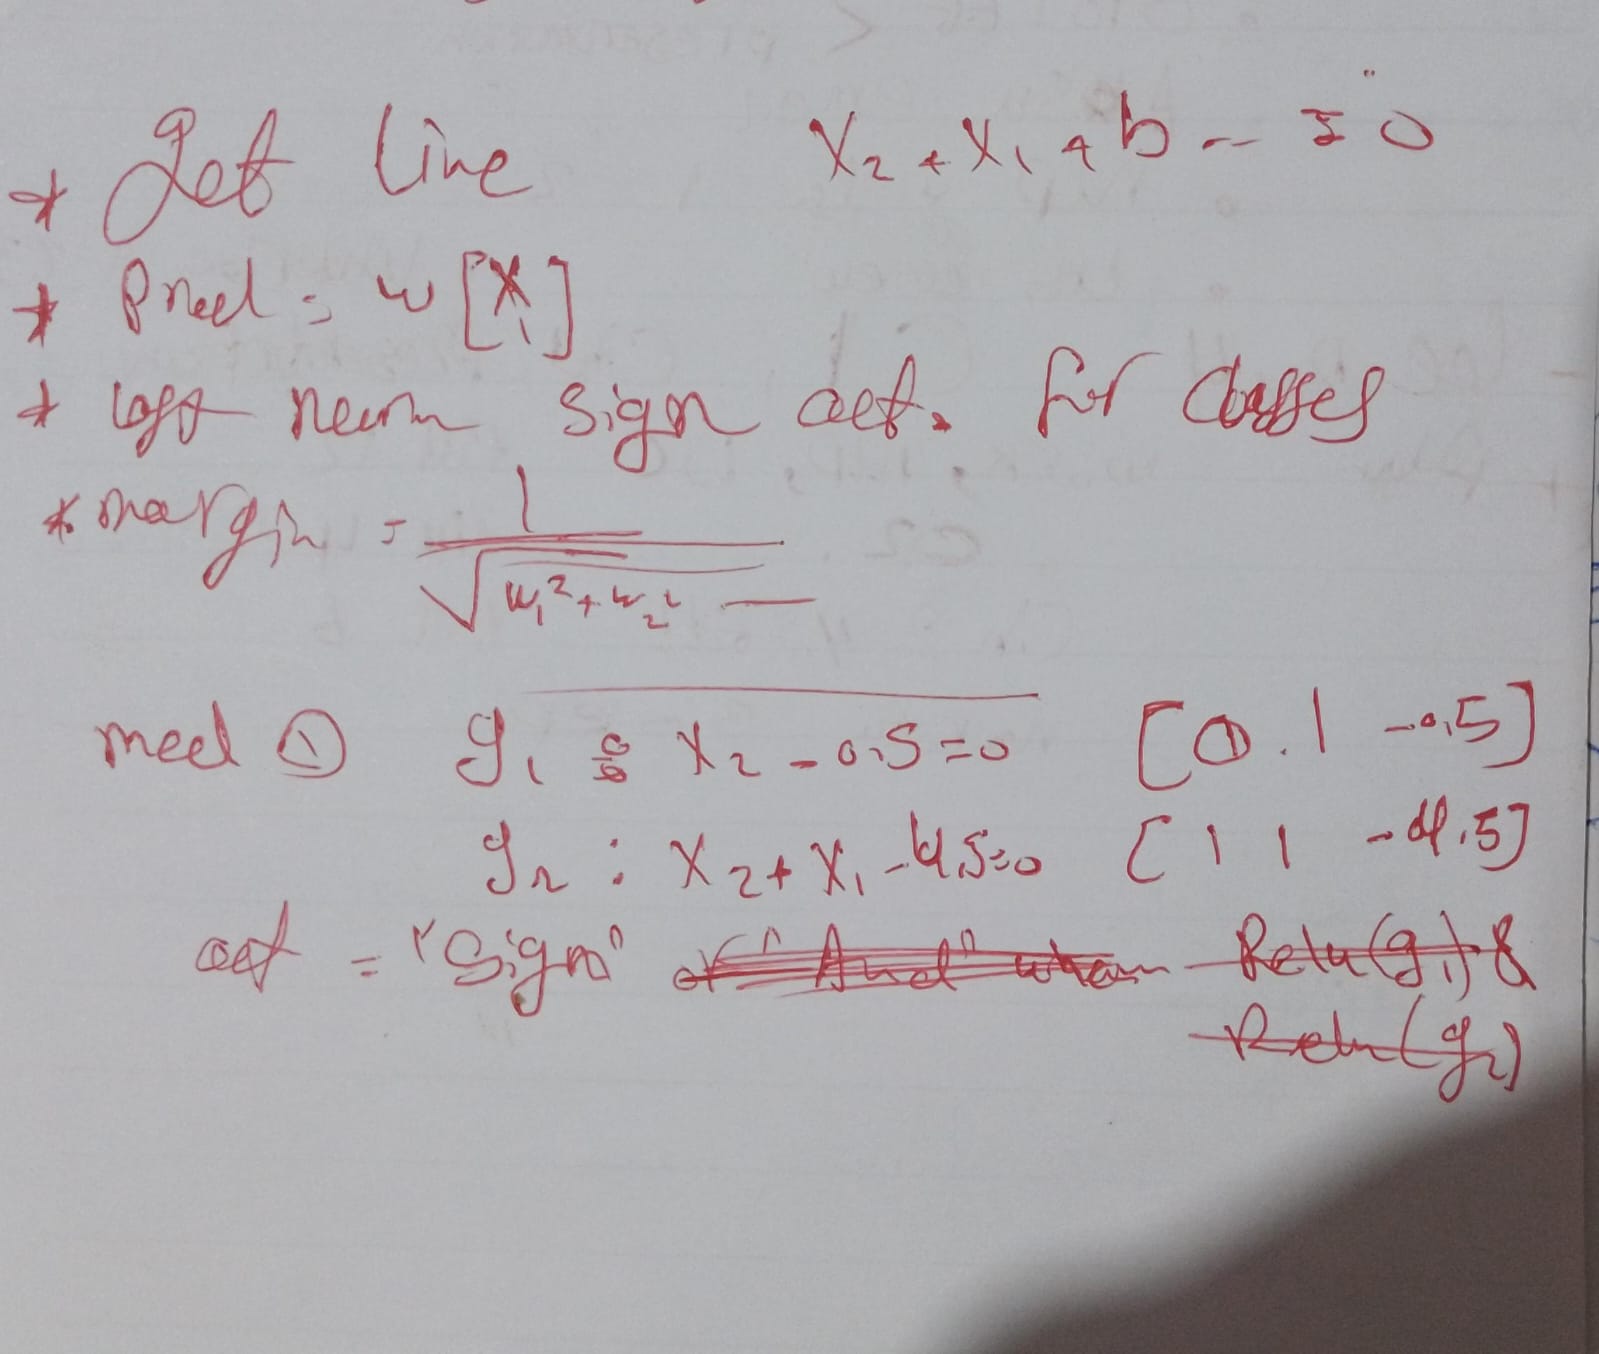 * Get line X₂ + X₁ + b -- = 0
* Pred = w [X 1]
* neuron sign act. for classes
* margin = 1 / √(w₁² + w₂² —)
①  g₁ : X₂ - 0.5 = 0 [0 . 1 -0.5]
g₂ : X₂ + X₁ - 4.5 = 0 [1 1 -4.5]
act = "Sign" "And" when Relu(g₁) &
Relu(g₂)